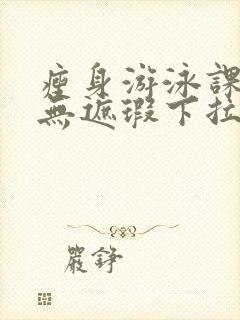 瘦身游泳課
無遮瑕下拉
嚴錚